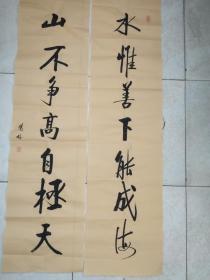 水惟善下能成海
山不争高自极天